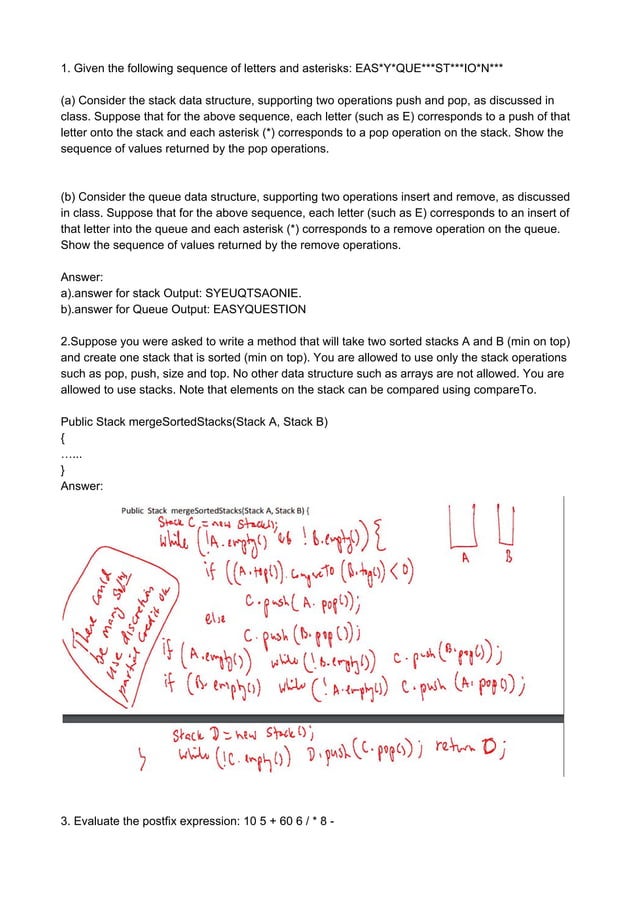 1. Given the following sequence of letters and asterisks: EAS*Y*QUE***ST***IO*N***
(a) Consider the stack data structure, supporting two operations push and pop, as discussed in
class. Suppose that for the above sequence, each letter (such as E) corresponds to a push of that
letter onto the stack and each asterisk (*) corresponds to a pop operation on the stack. Show the
sequence of values returned by the pop operations.
(b) Consider the queue data structure, supporting two operations insert and remove, as discussed
in class. Suppose that for the above sequence, each letter (such as E) corresponds to an insert of
that letter into the queue and each asterisk (*) corresponds to a remove operation on the queue.
Show the sequence of values returned by the remove operations.
Answer:
a).answer for stack Output: SYEUQTSAONIE.
b).answer for Queue Output: EASYQUESTION
2.Suppose you were asked to write a method that will take two sorted stacks A and B (min on top)
and create one stack that is sorted (min on top). You are allowed to use only the stack operations
such as pop, push, size and top. No other data structure such as arrays are not allowed. You are
allowed to use stacks. Note that elements on the stack can be compared using compareTo.
Public Stack mergeSortedStacks(Stack A, Stack B)
{
…...
}
Answer:
Public Stack mergeSortedStacks(Stack A, Stack B) {
Stack C = new Stack();
while (!A.empty() && !B.empty()) {
A B
if ((A.top()).compareTo (B.top()) < 0)
C.push(A.pop());
else
C.push(B.pop());
if (A.empty()) while (!B.empty()) C.push(B.pop());
if (B.empty()) while (!A.empty()) C.push(A.pop());
There could
be many
use discretion
partial credit ok
Stack D = new Stack();
} while (!C.empty()) D.push(C.pop()); return D;
3. Evaluate the postfix expression: 10 5 + 60 6 / * 8 -